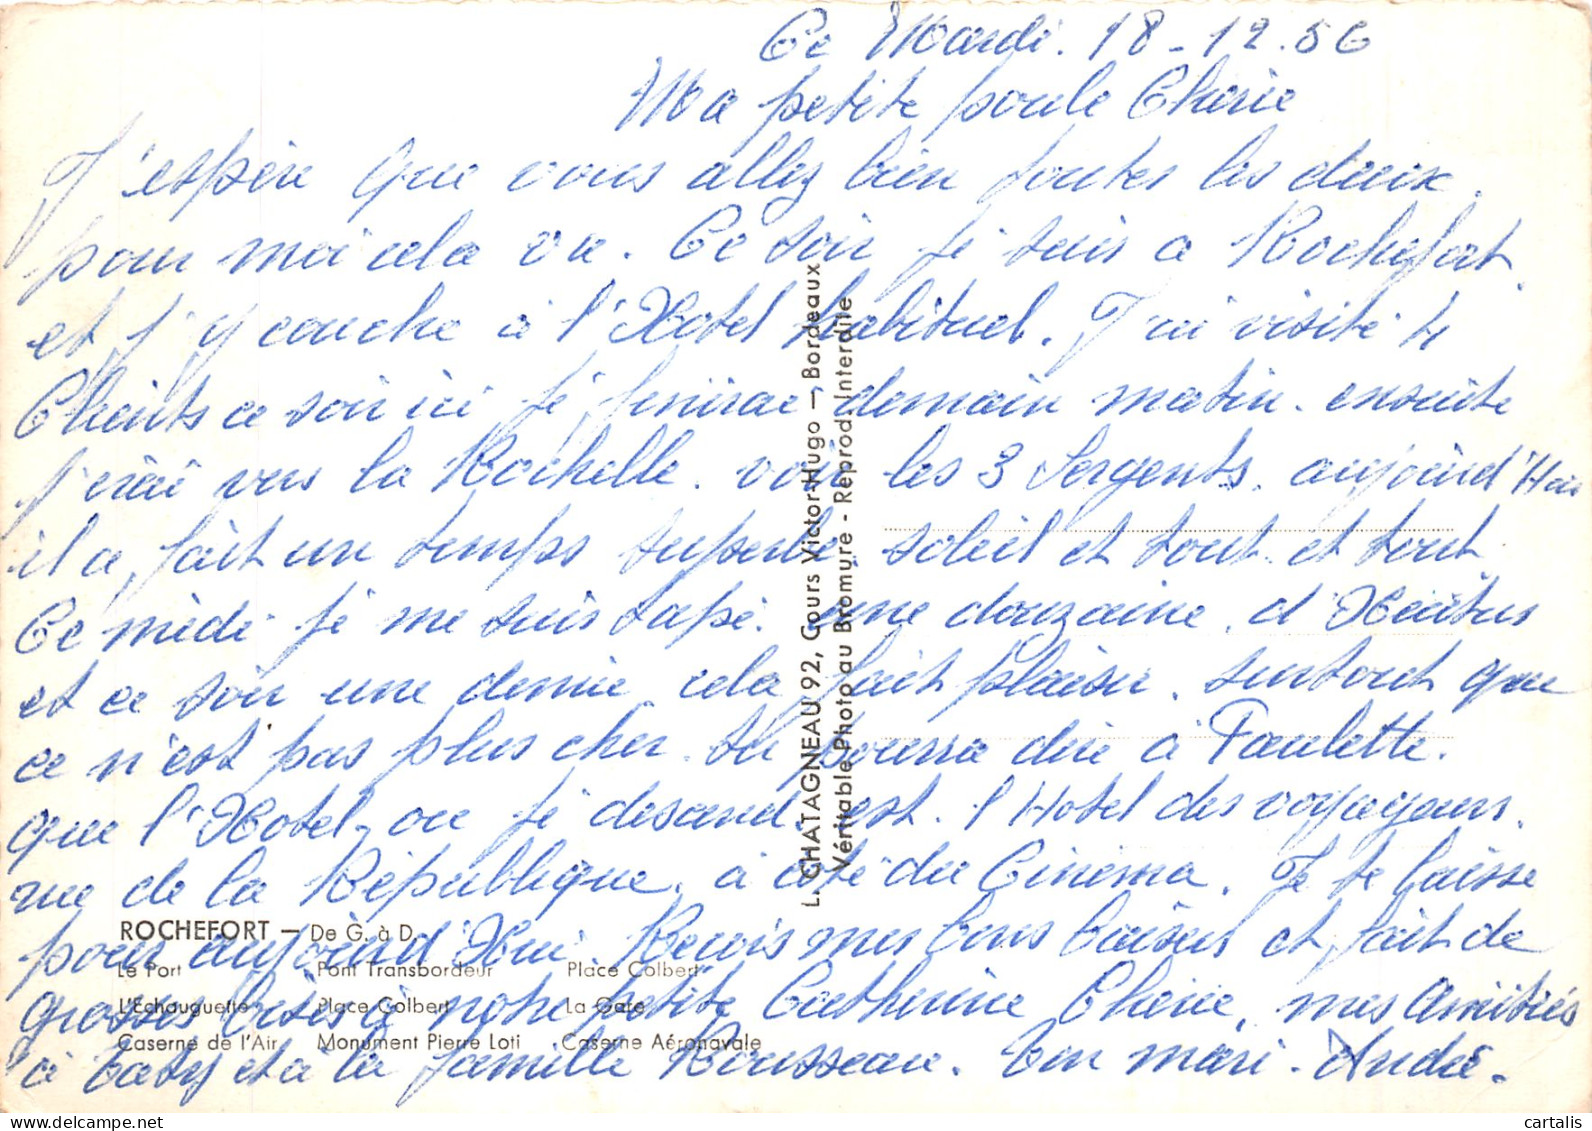 Ce Mardi. 18-12.56
Ma petite poule Cherie
J'espère que vous allez bien toutes les deux.
pour moi cela va. Ce soir je suis a Rochefort
et j'y couche à l'Hotel habituel. J'ai visité 4
Clients ce soir ici je finirai demain matin. ensuite
j'irai vers la Rochelle. voir les 3 Sergents. aujourd'Hui
il a fait un temps superbe soleil et tout et tout.
Ce midi je me suis tapé une douzaine d'Huitres
et ce soir une demie cela fait plaisir. surtout que
ce n'est pas plus cher. tu pourra dire à Paulette.
que l'Hotel, ou je desend. est. l'Hotel des voyageurs.
rue de la République. à coté du Cinema. Je te laisse
pour aujourd'Hui. Recois mes bons baisers et fait de
grosses bises à notre petite Catherine Cherie, mes Amitiés
à Caty et à la famille Rousseau. Ton mari. André.
ROCHEFORT — De G. à D.
Le Port Pont Transbordeur Place Colbert
L'Echauguette Place Colbert La Gare
Caserne de l'Air Monument Pierre Loti Caserne Aéronavale
L. CHATAGNEAU 92, Cours Victor-Hugo — Bordeaux
Véritable Photo au Bromure - Reprod. Interdite
cartalis